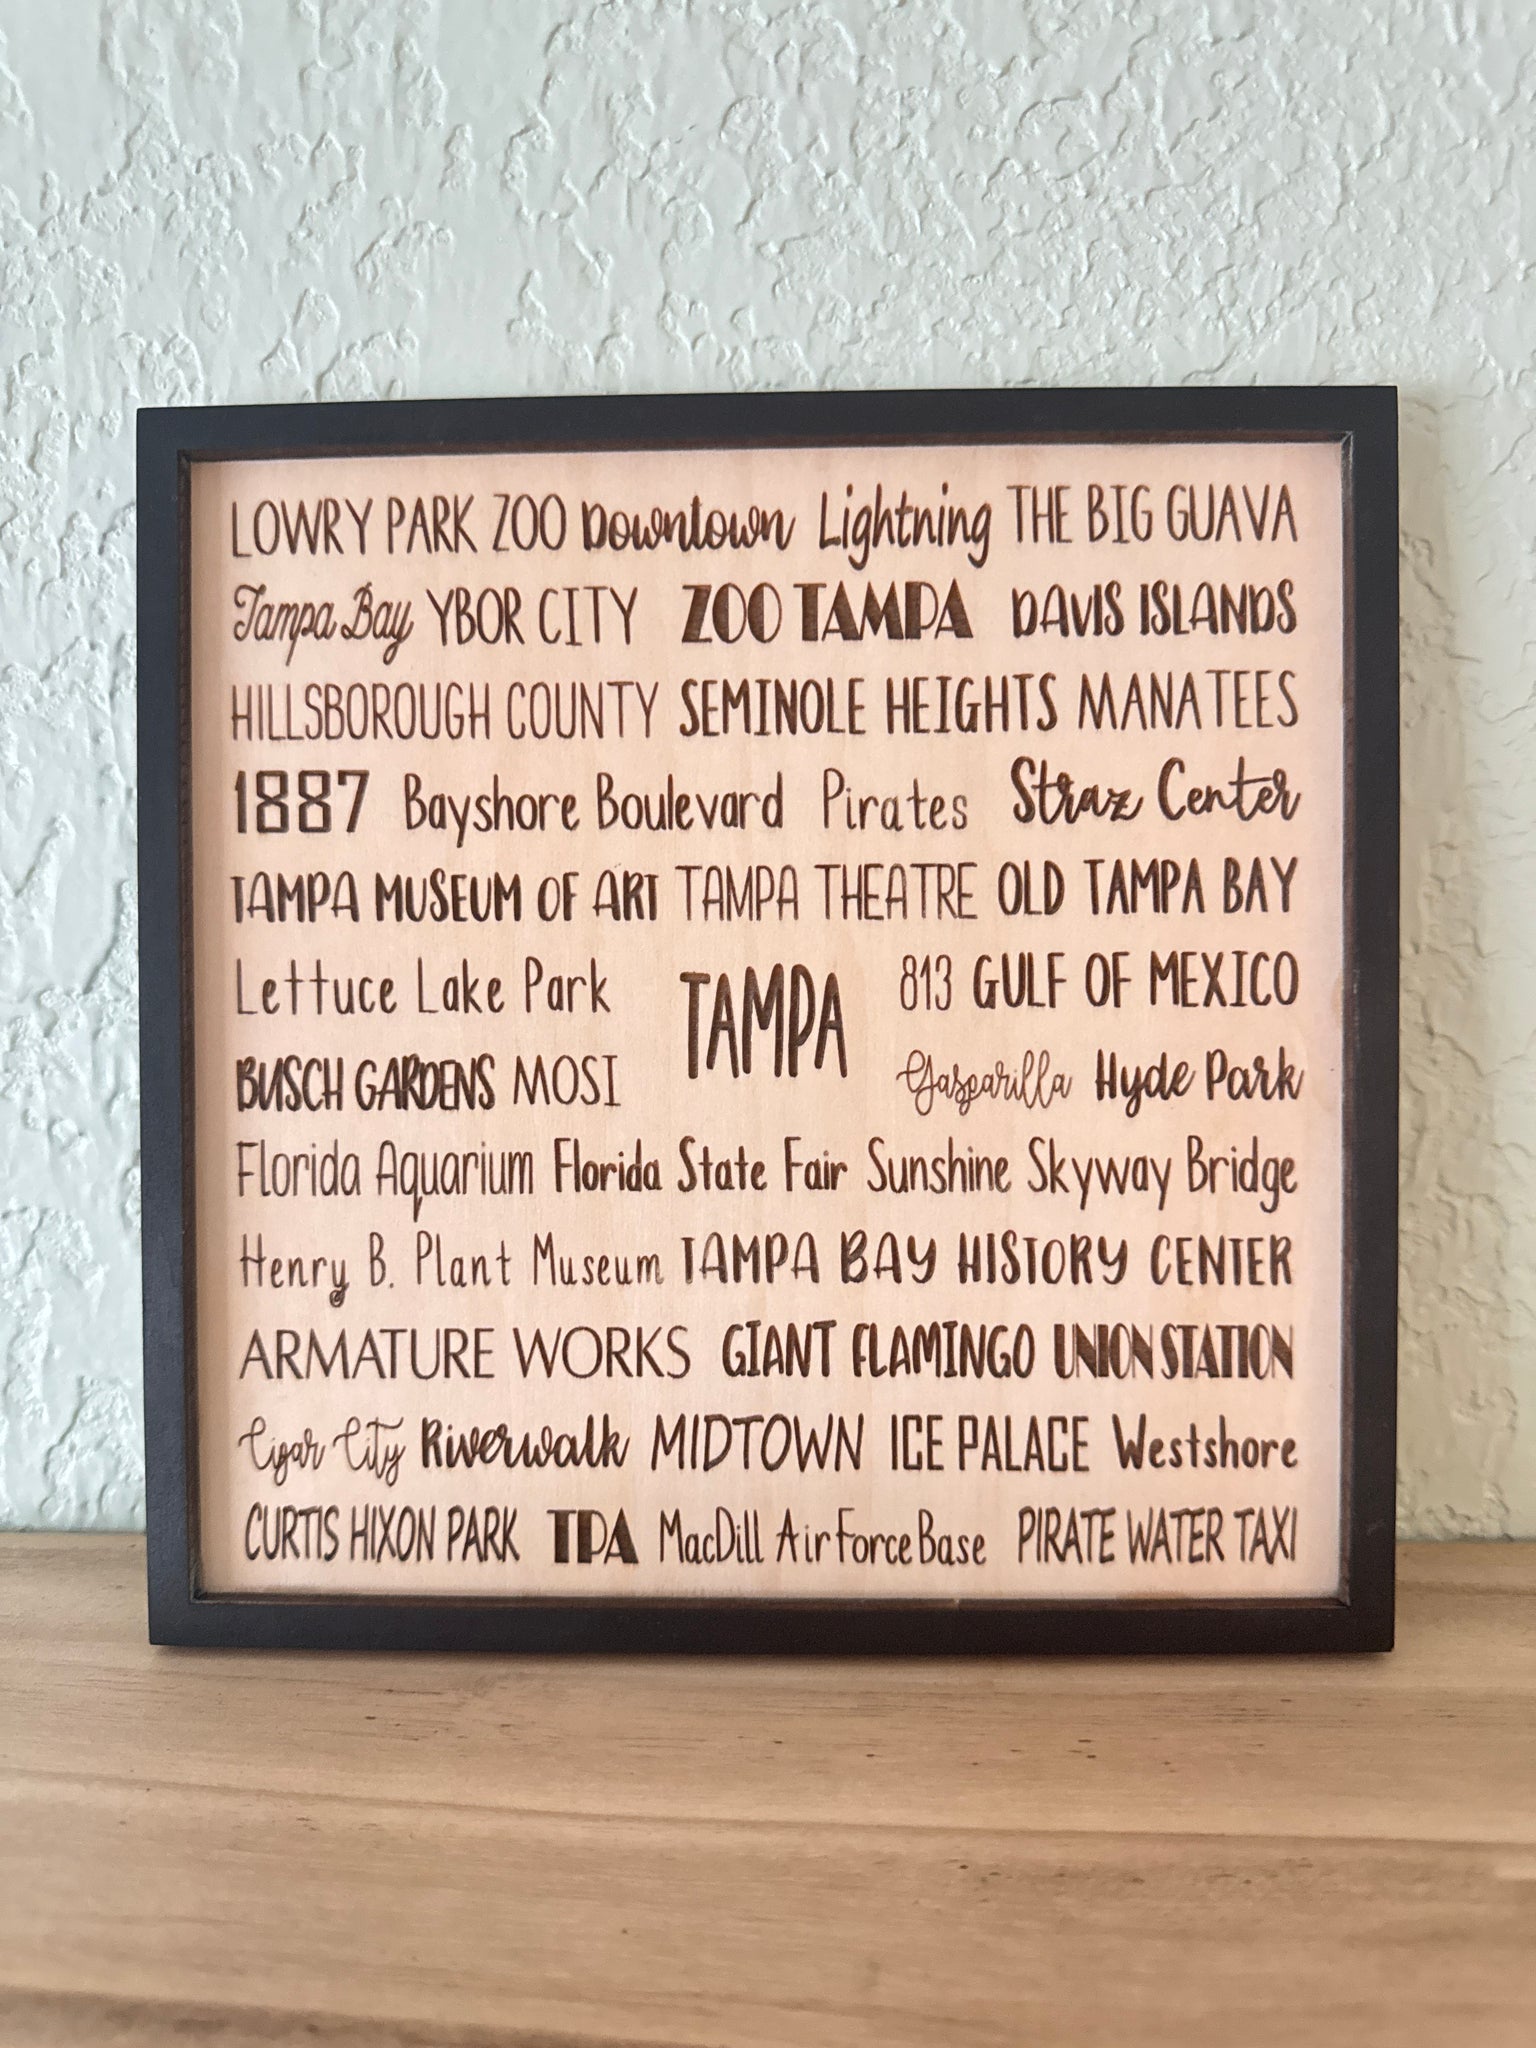 LOWRY PARK ZOO Downtown Lightning THE BIG GUAVA
Tampa Bay YBOR CITY ZOO TAMPA DAVIS ISLANDS
HILLSBOROUGH COUNTY SEMINOLE HEIGHTS MANATEES
1887 Bayshore Boulevard Pirates Straz Center
TAMPA MUSEUM OF ART TAMPA THEATRE OLD TAMPA BAY
Lettuce Lake Park 813 GULF OF MEXICO
TAMPA
BUSCH GARDENS MOSI Gasparilla Hyde Park
Florida Aquarium Florida State Fair Sunshine Skyway Bridge
Henry B. Plant Museum TAMPA BAY HISTORY CENTER
ARMATURE WORKS GIANT FLAMINGO UNION STATION
Cigar City Riverwalk MIDTOWN ICE PALACE Westshore
CURTIS HIXON PARK TPA MacDill Air Force Base PIRATE WATER TAXI